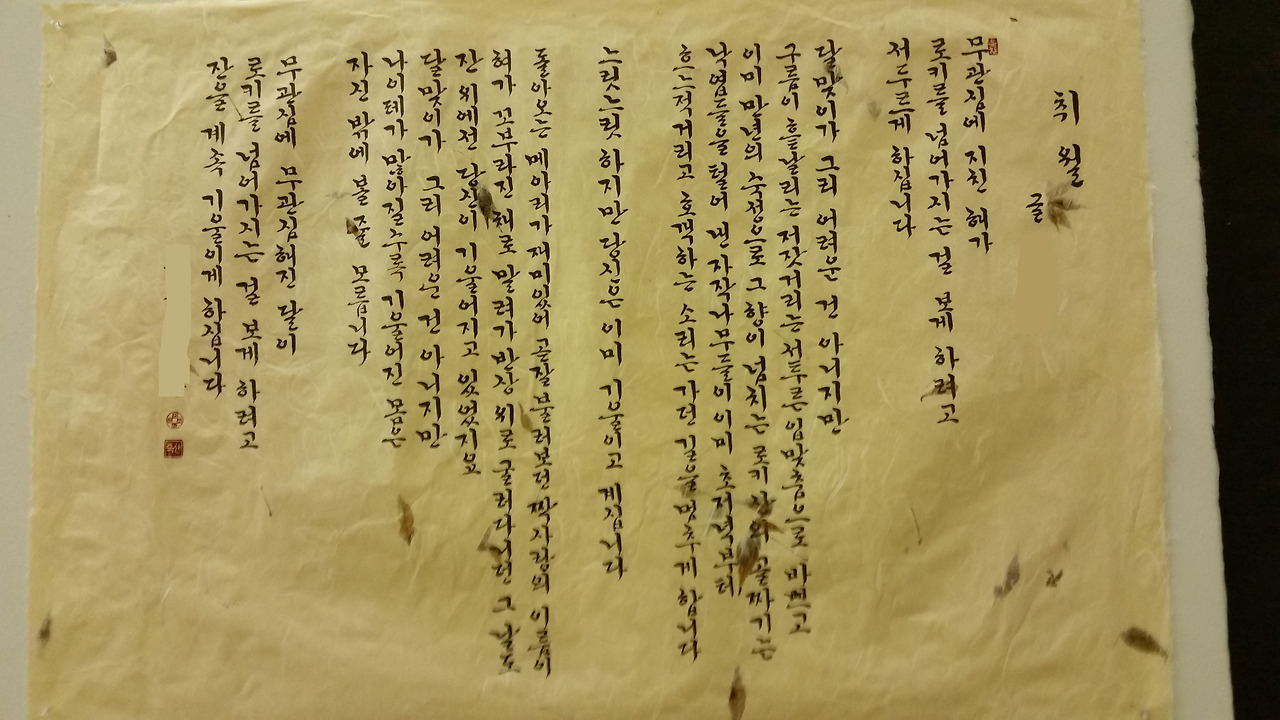 취 월
글
무관심에 지친 해가
로키를 넘어가지는 걸 보게 하려고
서두르게 하십니다
달맞이가 그리 어려운 건 아니지만
구름이 흩날리는 저잣거리는 서투른 입맞춤으로 바쁘고
이미 만년의 숙성으로 그 향이 넘치는 로키 산의 골짜기는
낙엽들을 털어 낸 자작나무들이 이미 초저녁부터
흐느적거리고 호객하는 소리는 가던 길을 멈추게 합니다
느릿느릿 하지만 당신은 이미 기울이고 계십니다
돌아오는 메아리가 재미있어 곧잘 불러보던 짝사랑의 이름이
혀가 꼬부라진 채로 말려가 반상 위로 굴러다니던 그 날도
잔 위에선 당신이 기울어지고 있었지요
달맞이가 그리 어려운 건 아니지만
나이테가 많아질수록 기울어진 몸은
자신 밖에 볼 줄 모릅니다
무관심에 무관심해진 달이
로키를 넘어가지는 걸 보게 하려고
잔을 계속 기울이게 하십니다